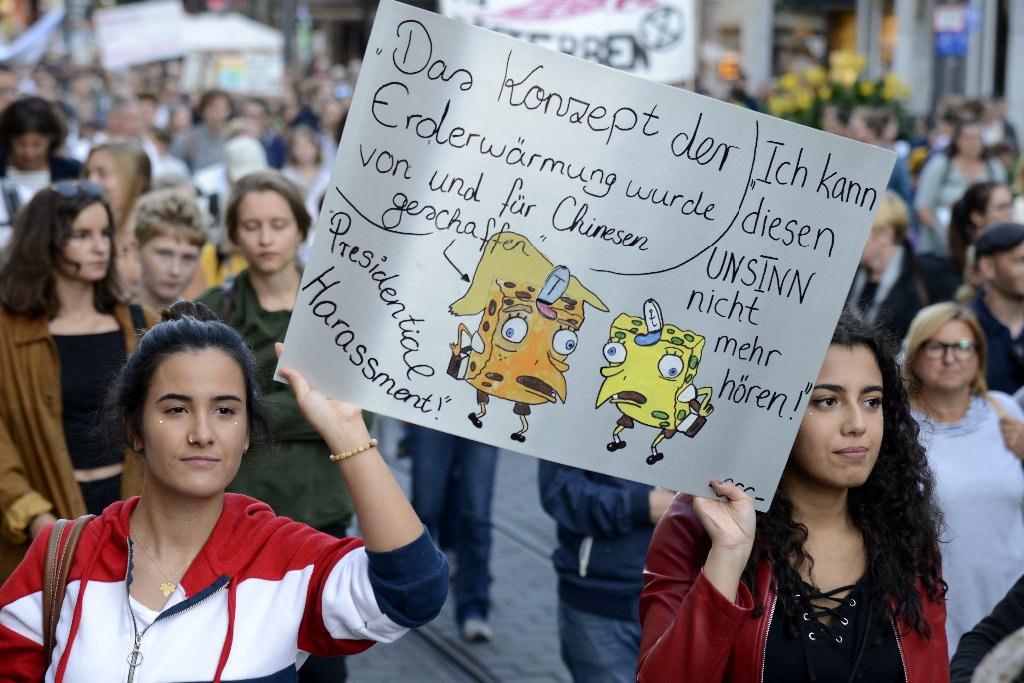 RBEN
„Das Konzept der
Erderwärmung wurde
von und für Chinesen
geschaffen“
"Presidential
Harassment!"
„Ich kann
diesen
UNSINN
nicht
mehr
hören!"